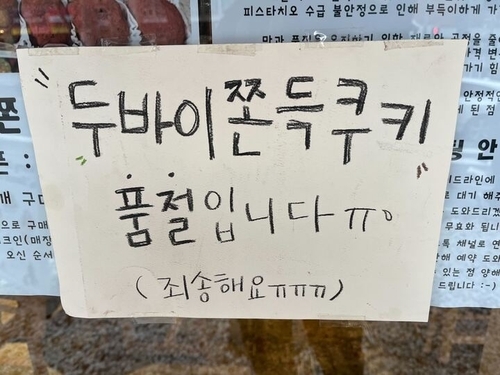 피스타치오 수급 불안정으로 인해 부득이하게 가
" 두바이쫀득쿠키 "
품절입니다 ㅠ°
( 죄송해요ㅠㅠㅠ )
쫀
개 구매
으로 구매
크인(매장
오신 순서
안정적인
게 된 점
안
로 대기 해주
도와드리겠
무효화 됩니
톡 채널로 연
해 예약 도와
있는 점 양해
드립니다 :-)